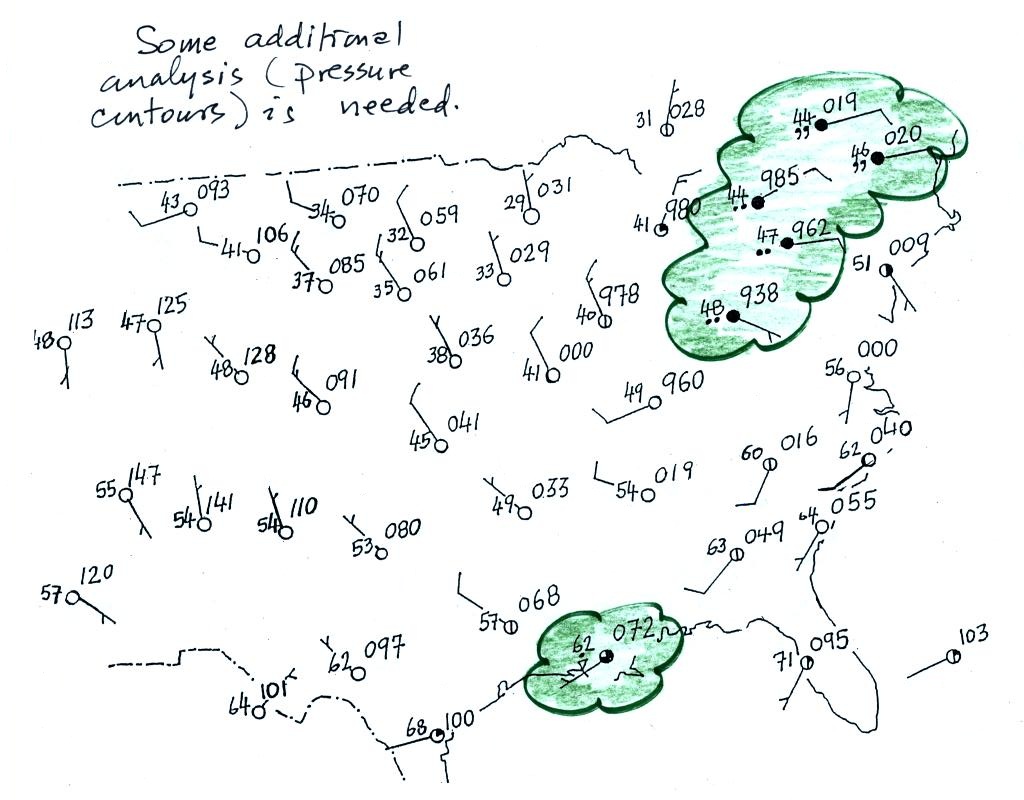 Some additional
analysis (pressure
contours) is needed.
31 028
44 019
46 020
43 093
34 070
32 059
29 031
41 980
44 985
47 962
51 009
41 106
37 085
35 061
33 029
40 978
48 938
48 113
47 125
48 128
38 036
41 000
46 091
49 960
56 000
45 041
60 016
62 040
55 147
54 141
54 110
53 080
49 033
54 019
64 055
63 049
57 120
57 068
62 072
62 097
71 095
103
64 101
68 100